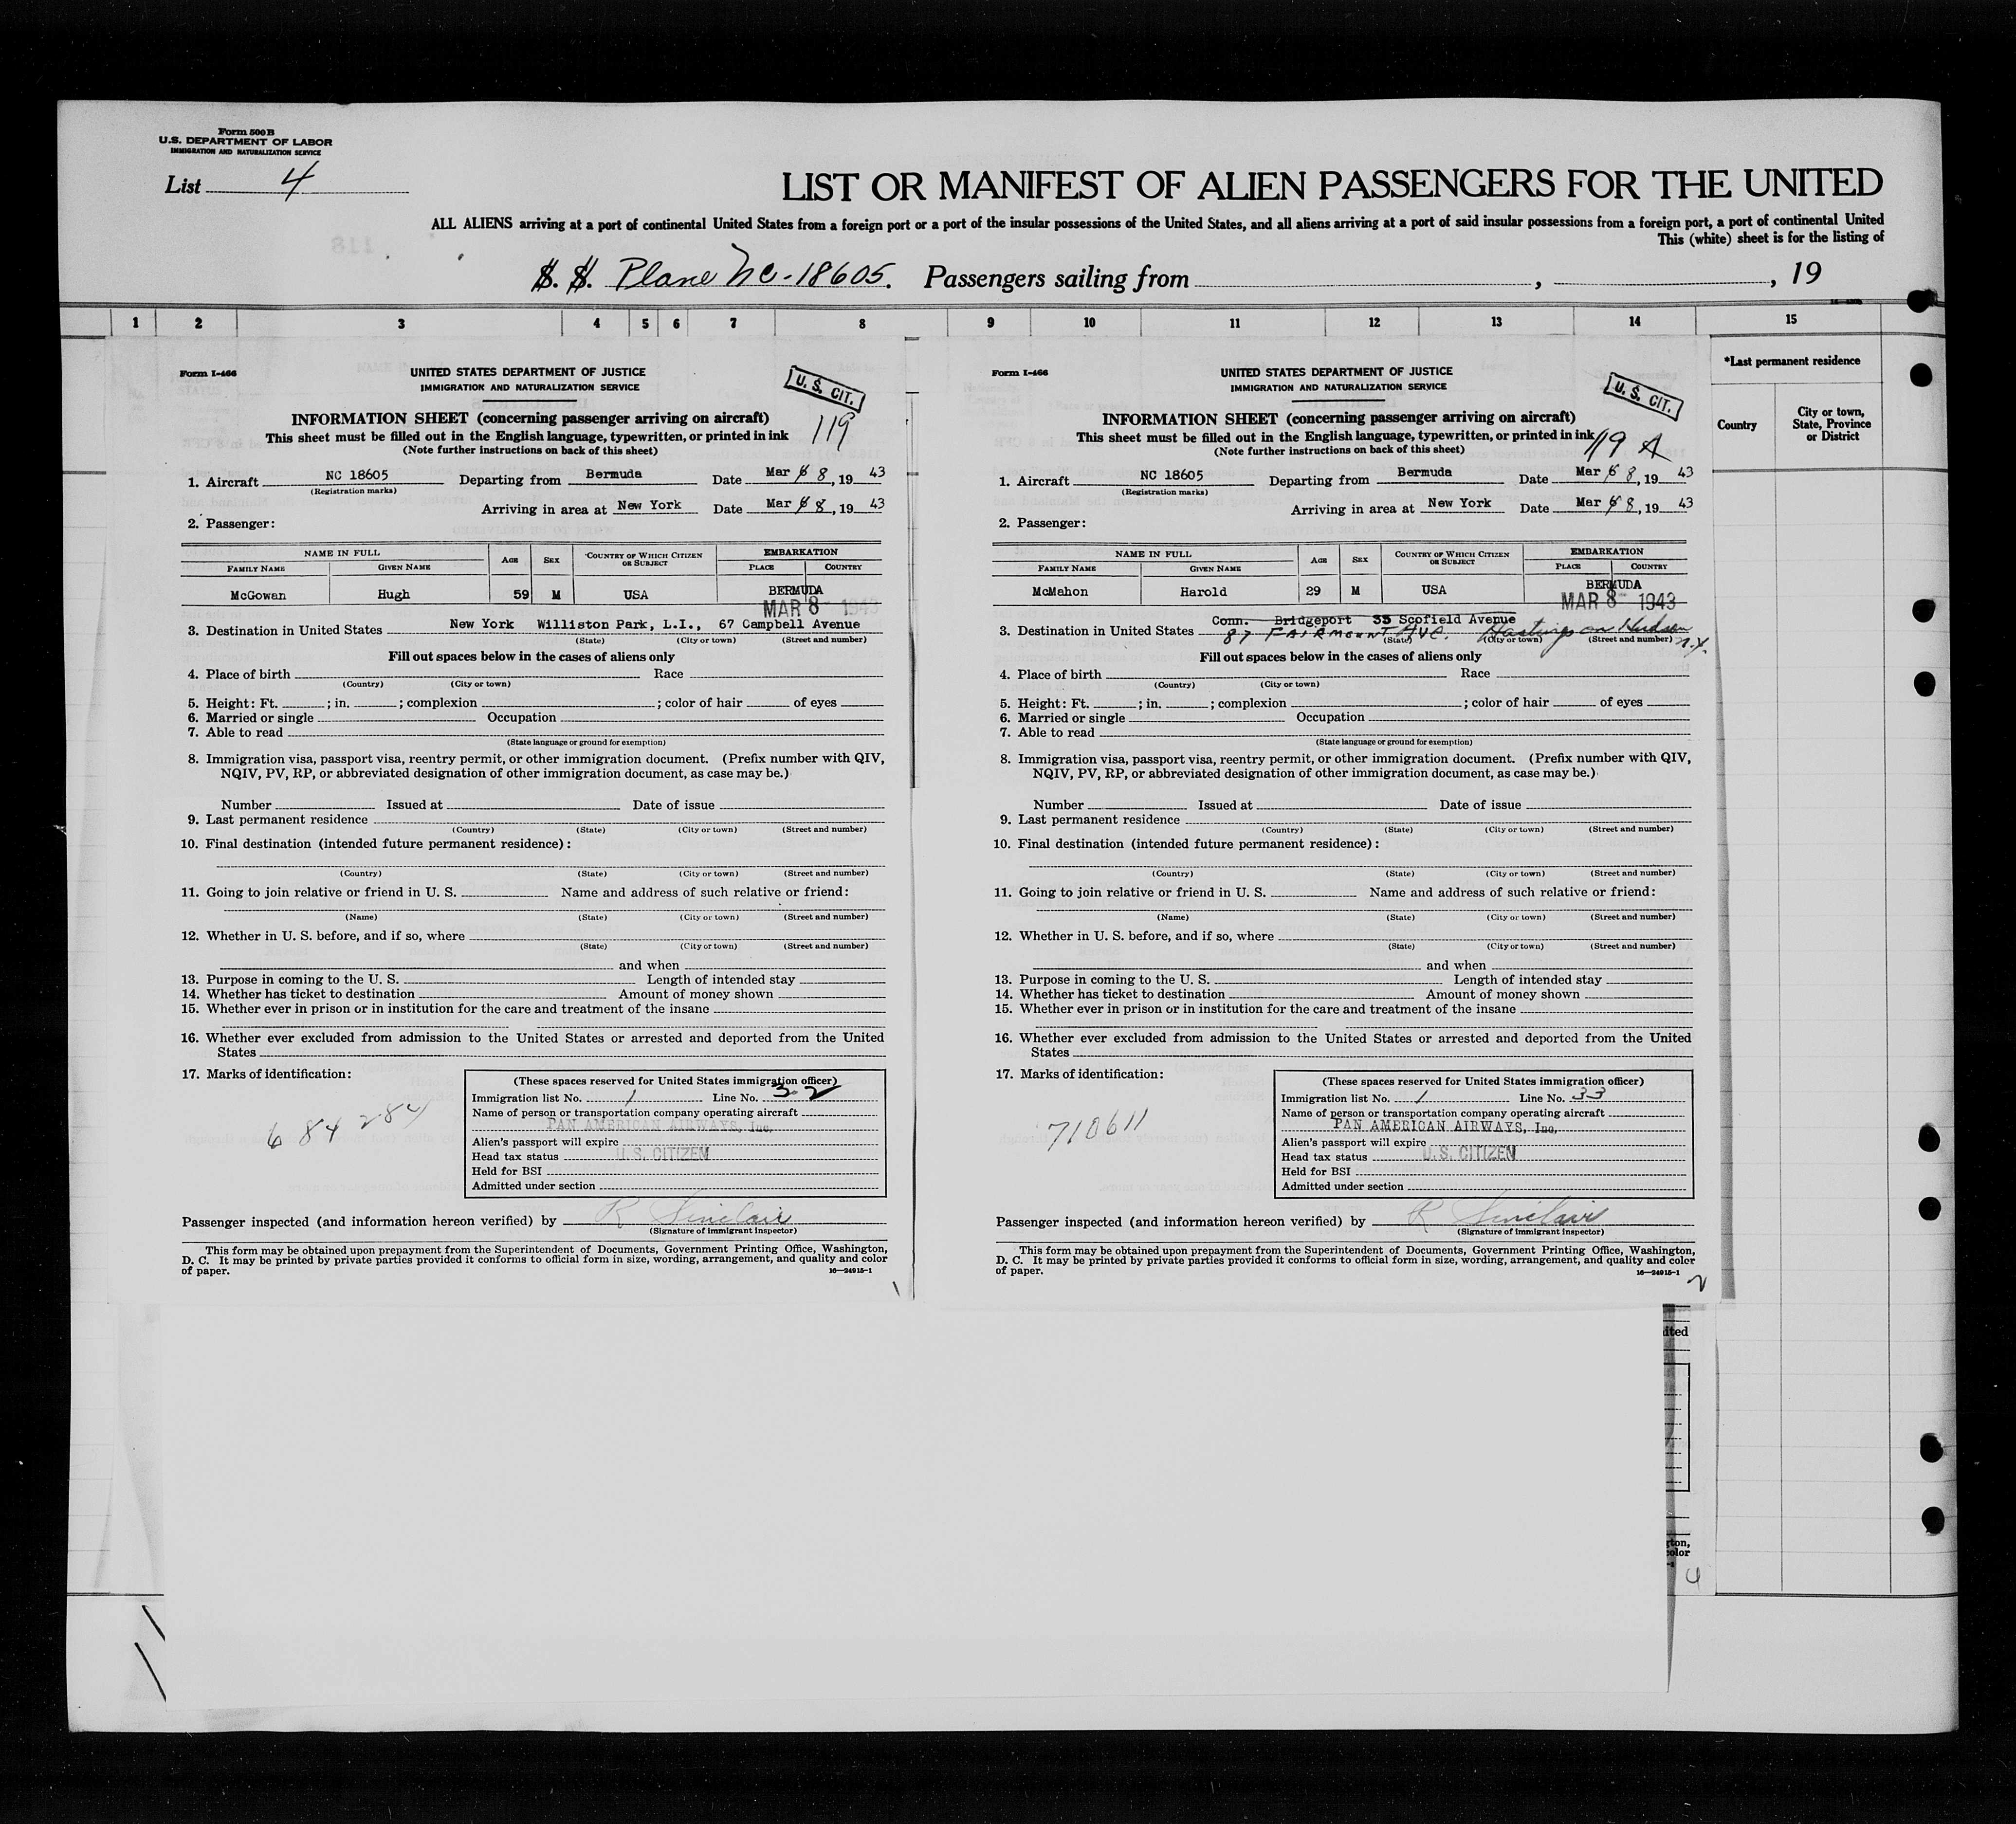 Form 500 B
U.S. DEPARTMENT OF LABOR
IMMIGRATION AND NATURALIZATION SERVICE
List 4
LIST OR MANIFEST OF ALIEN PASSENGERS FOR THE UNITED
ALL ALIENS arriving at a port of continental United States from a foreign port or a port of the insular possessions of the United States, and all aliens arriving at a port of said insular possessions from a foreign port, a port of continental United
This (white) sheet is for the listing of
118
S. S. Plane NC-18605. Passengers sailing from , , 19
1 2 3 4 5 6 7 8 9 10 11 12 13 14 15
*Last permanent residence
Country
City or town, State, Province or District
Form I-466
UNITED STATES DEPARTMENT OF JUSTICE
IMMIGRATION AND NATURALIZATION SERVICE
U. S. CIT.
INFORMATION SHEET (concerning passenger arriving on aircraft)
119
This sheet must be filled out in the English language, typewritten, or printed in ink
(Note further instructions on back of this sheet)
1. Aircraft NC 18605 Departing from Bermuda Date Mar 6 8, 19 43
(Registration marks)
Arriving in area at New York Date Mar 6 8, 19 43
2. Passenger:
NAME IN FULL AGE SEX COUNTRY OF WHICH CITIZEN OR SUBJECT EMBARKATION
FAMILY NAME GIVEN NAME PLACE COUNTRY
McGowan Hugh 59 M USA BERMUDA
MAR 8 1943
3. Destination in United States New York Williston Park, L.I., 67 Campbell Avenue
(State) (City or town) (Street and number)
Fill out spaces below in the cases of aliens only
4. Place of birth Race
(Country) (City or town)
5. Height: Ft. ; in. ; complexion ; color of hair of eyes
6. Married or single Occupation
7. Able to read
(State language or ground for exemption)
8. Immigration visa, passport visa, reentry permit, or other immigration document. (Prefix number with QIV,
NQIV, PV, RP, or abbreviated designation of other immigration document, as case may be.)
Number Issued at Date of issue
9. Last permanent residence
(Country) (State) (City or town) (Street and number)
10. Final destination (intended future permanent residence):
(Country) (State) (City or town) (Street and number)
11. Going to join relative or friend in U. S. Name and address of such relative or friend:
(Name) (State) (City or town) (Street and number)
12. Whether in U. S. before, and if so, where
(State) (City or town) (Street and number)
and when
13. Purpose in coming to the U. S. Length of intended stay
14. Whether has ticket to destination Amount of money shown
15. Whether ever in prison or in institution for the care and treatment of the insane
16. Whether ever excluded from admission to the United States or arrested and deported from the United
States
17. Marks of identification:
684284
(These spaces reserved for United States immigration officer)
Immigration list No. 1 Line No. 32
Name of person or transportation company operating aircraft
PAN AMERICAN AIRWAYS, Inc.
Alien's passport will expire
Head tax status U.S. CITIZEN
Held for BSI
Admitted under section
Passenger inspected (and information hereon verified) by R Sinclair
(Signature of immigrant inspector)
This form may be obtained upon prepayment from the Superintendent of Documents, Government Printing Office, Washington,
D. C. It may be printed by private parties provided it conforms to official form in size, wording, arrangement, and quality and color
of paper. 16—24915-1
1
Form I-466
UNITED STATES DEPARTMENT OF JUSTICE
IMMIGRATION AND NATURALIZATION SERVICE
U. S. CIT.
INFORMATION SHEET (concerning passenger arriving on aircraft)
This sheet must be filled out in the English language, typewritten, or printed in ink
119 A
(Note further instructions on back of this sheet)
1. Aircraft NC 18605 Departing from Bermuda Date Mar 6 8, 19 43
(Registration marks)
Arriving in area at New York Date Mar 6 8, 19 43
2. Passenger:
NAME IN FULL AGE SEX COUNTRY OF WHICH CITIZEN OR SUBJECT EMBARKATION
FAMILY NAME GIVEN NAME PLACE COUNTRY
McMahon Harold 29 M USA BERMUDA
MAR 8 1943
Conn. Bridgeport 35 Scofield Avenue
3. Destination in United States 87 FAIRMOUNT AVE. Hastings on Hudson N.Y.
(State) (City or town) (Street and number)
Fill out spaces below in the cases of aliens only
4. Place of birth Race
(Country) (City or town)
5. Height: Ft. ; in. ; complexion ; color of hair of eyes
6. Married or single Occupation
7. Able to read
(State language or ground for exemption)
8. Immigration visa, passport visa, reentry permit, or other immigration document. (Prefix number with QIV,
NQIV, PV, RP, or abbreviated designation of other immigration document, as case may be.)
Number Issued at Date of issue
9. Last permanent residence
(Country) (State) (City or town) (Street and number)
10. Final destination (intended future permanent residence):
(Country) (State) (City or town) (Street and number)
11. Going to join relative or friend in U. S. Name and address of such relative or friend:
(Name) (State) (City or town) (Street and number)
12. Whether in U. S. before, and if so, where
(State) (City or town) (Street and number)
and when
13. Purpose in coming to the U. S. Length of intended stay
14. Whether has ticket to destination Amount of money shown
15. Whether ever in prison or in institution for the care and treatment of the insane
16. Whether ever excluded from admission to the United States or arrested and deported from the United
States
17. Marks of identification:
710611
(These spaces reserved for United States immigration officer)
Immigration list No. 1 Line No. 33
Name of person or transportation company operating aircraft
PAN AMERICAN AIRWAYS, Inc.
Alien's passport will expire
Head tax status U.S. CITIZEN
Held for BSI
Admitted under section
Passenger inspected (and information hereon verified) by R Sinclair
(Signature of immigrant inspector)
This form may be obtained upon prepayment from the Superintendent of Documents, Government Printing Office, Washington,
D. C. It may be printed by private parties provided it conforms to official form in size, wording, arrangement, and quality and color
of paper. 16—24915-1
2
ited
ton,
olor
4